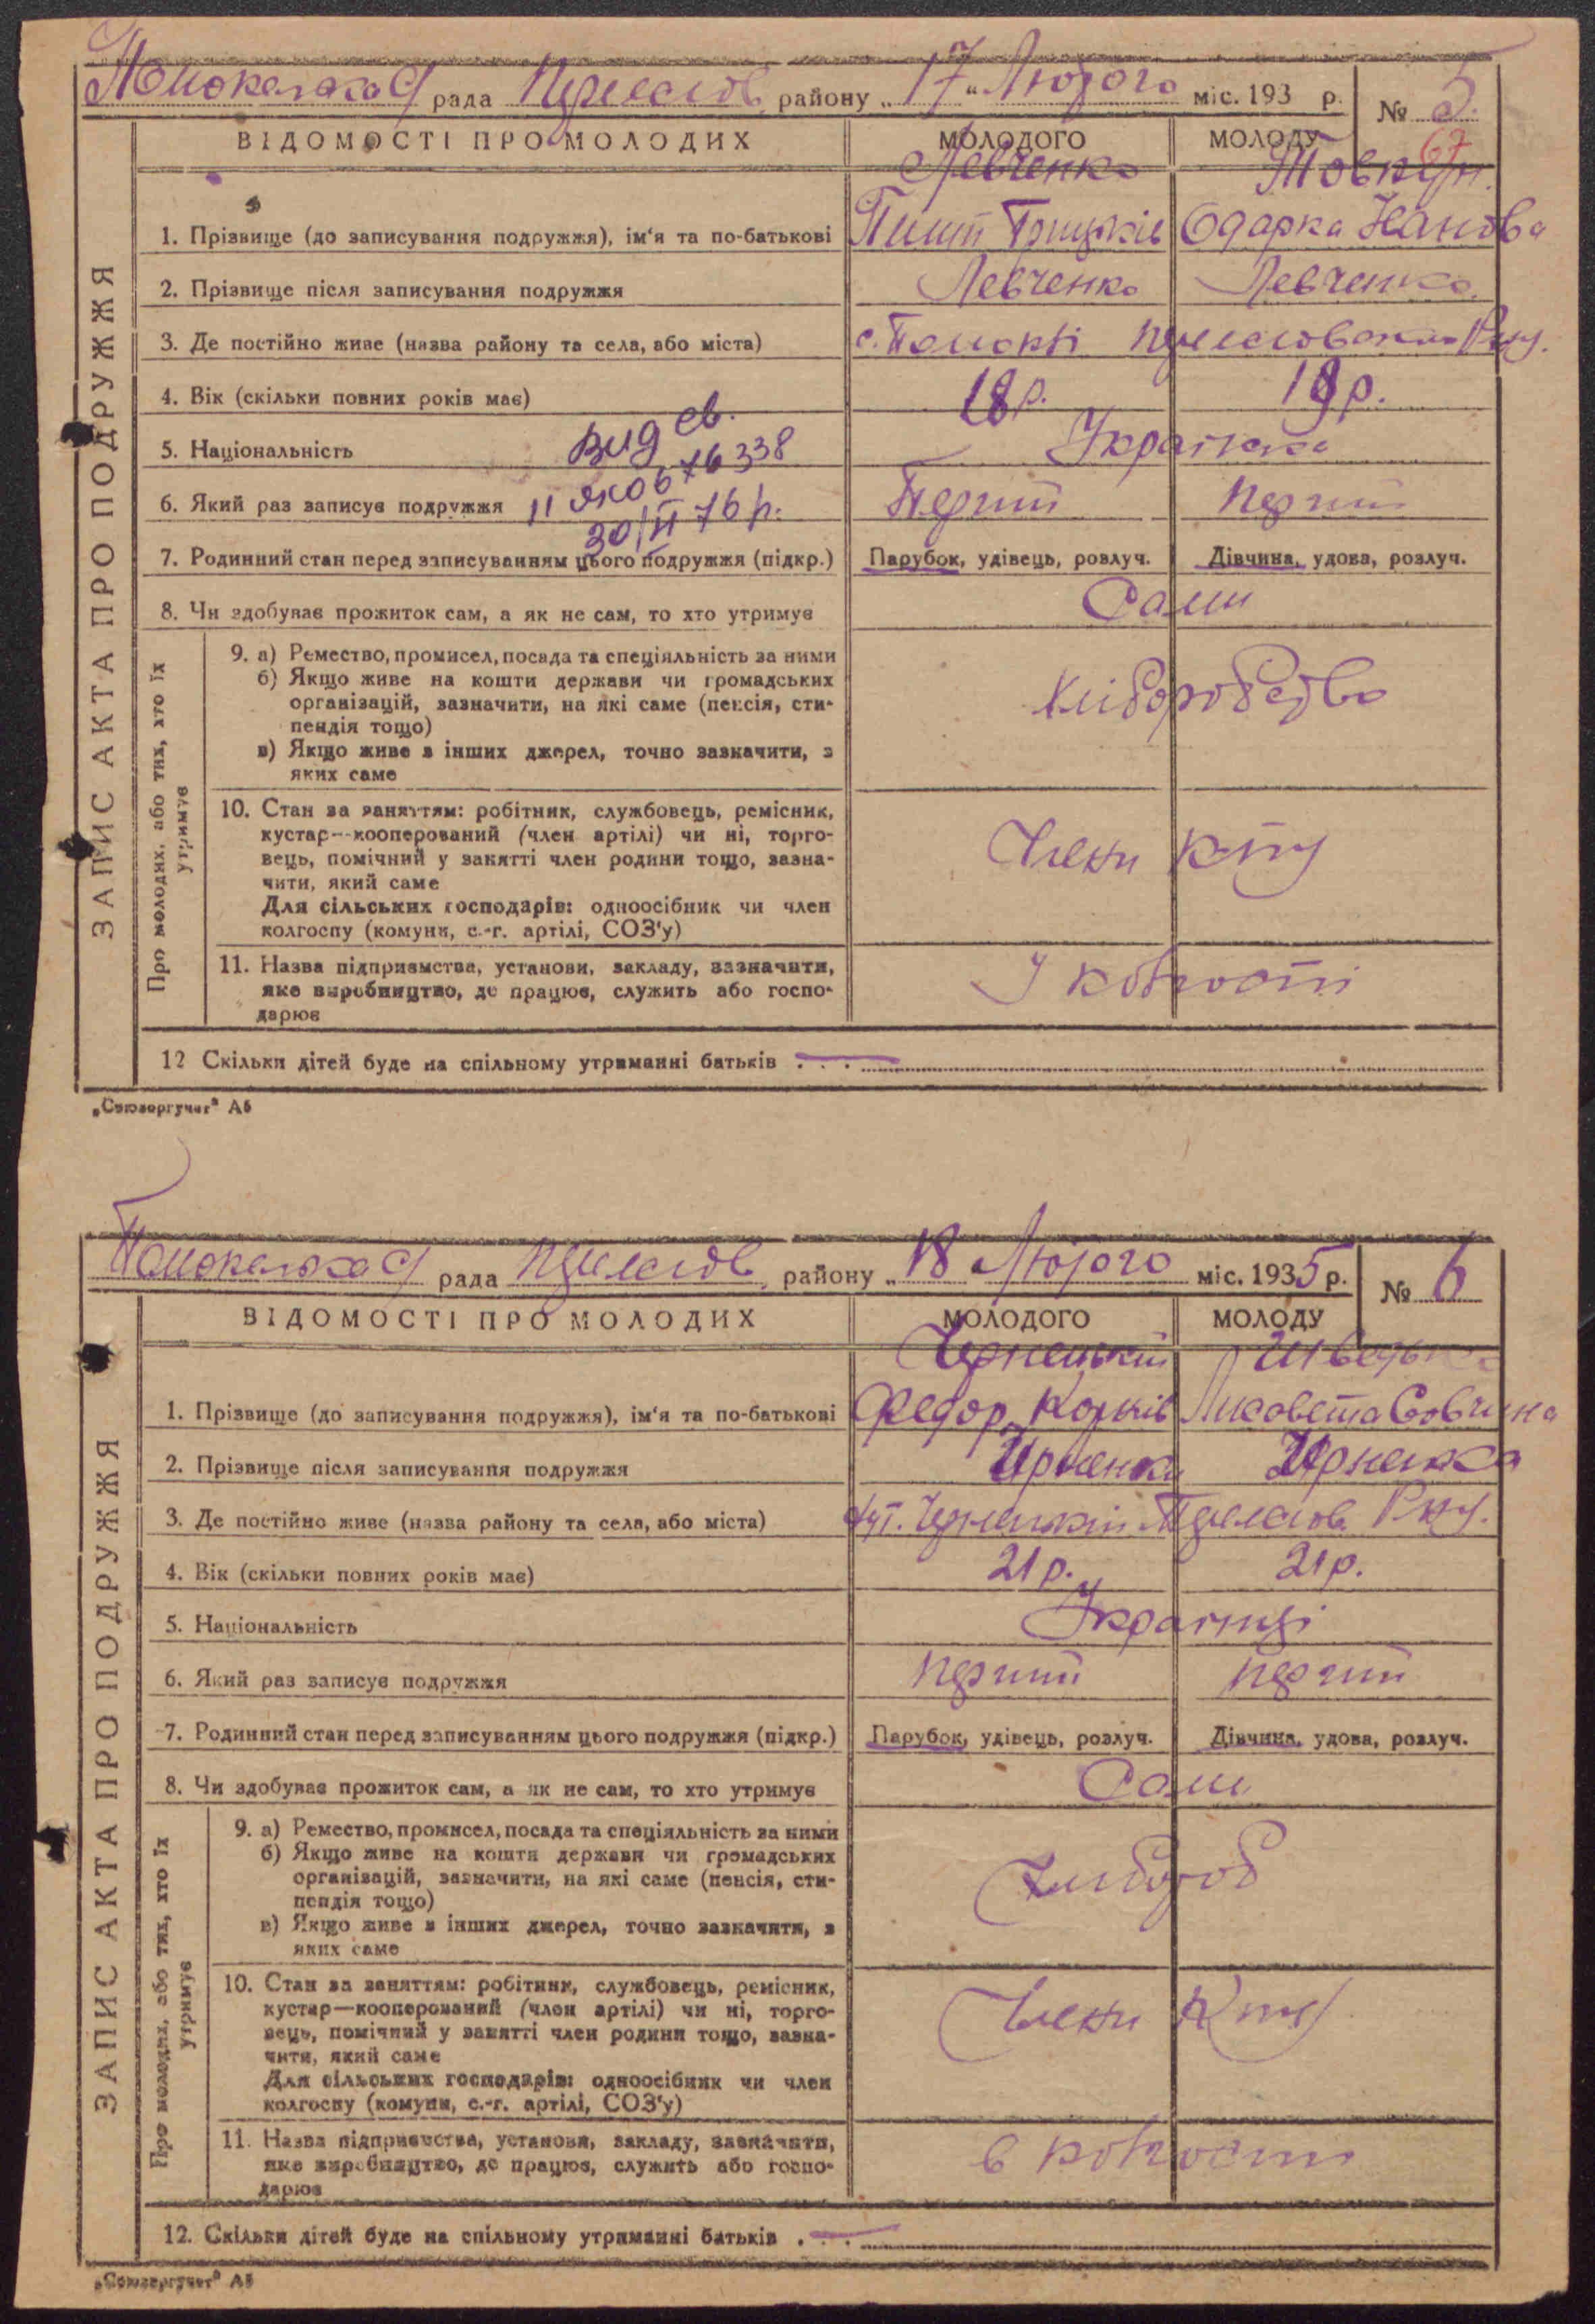 рада району „17“ Лютого міс. 193 р. № 5.
67
ВІДОМОСТІ ПРО МОЛОДИХ МОЛОДОГО МОЛОДУ
Левченко
1. Прізвище (до записування подружжя), ім'я та по-батькові Грицьків Одарка Іванова
2. Прізвище після записування подружжя Левченко Левченко
3. Де постійно живе (назва району та села, або міста) с.
4. Вік (скільки повних років має) 18 р. 19 р.
5. Національність
вид св.
6. Який раз записує подружжя Перший Перший
II 338
30/II 76 р.
7. Родинний стан перед записуванням цього подружжя (підкр.) Парубок, удівець, розлуч. Дівчина, удова, розлуч.
8. Чи здобуває прожиток сам, а як не сам, то хто утримує Сами
ЗАПИС АКТА ПРО ПОДРУЖЖЯ
Про молодих, або тих, хто їх утримує
9. а) Ремество, промисел, посада та спеціяльність за ними
б) Якщо живе на кошти держави чи громадських
організацій, зазначити, на які саме (пенсія, сти-
пендія тощо)
в) Якщо живе з інших джерел, точно зазначити, з
яких саме
Хліборобство
10. Стан за заняттям: робітник, службовець, ремісник,
кустар—кооперований (член артілі) чи ні, торго-
вець, помічний у занятті член родини тощо, зазна-
чити, який саме
Для сільських господарів: одноосібник чи член
колгоспу (комуни, с.-г. артілі, СОЗ'у)
Члени
11. Назва підприємства, установи, закладу, зазначити,
яке виробництво, де працює, служить або госпо-
дарює
У колгоспі
12 Скільки дітей буде на спільному утриманні батьків . . . —
„Союзоргучет“ А5
рада району „18“ Лютого міс. 1935 р. № 6
ВІДОМОСТІ ПРО МОЛОДИХ МОЛОДОГО МОЛОДУ
1. Прізвище (до записування подружжя), ім'я та по-батькові Федор Лисовета
2. Прізвище після записування подружжя
3. Де постійно живе (назва району та села, або міста) хут.
4. Вік (скільки повних років має) 21 р. 21 р.
5. Національність Українці
6. Який раз записує подружжя Перший Перший
7. Родинний стан перед записуванням цього подружжя (підкр.) Парубок, удівець, розлуч. Дівчина, удова, розлуч.
8. Чи здобуває прожиток сам, а як не сам, то хто утримує Сами
ЗАПИС АКТА ПРО ПОДРУЖЖЯ
Про молодих, або тих, хто їх утримує
9. а) Ремество, промисел, посада та спеціяльність за ними
б) Якщо живе на кошти держави чи громадських
організацій, зазначити, на які саме (пенсія, сти-
пендія тощо)
в) Якщо живе з інших джерел, точно зазначити, з
яких саме
Хлібороб
10. Стан за заняттям: робітник, службовець, ремісник,
кустар—кооперований (член артілі) чи ні, торго-
вець, помічний у занятті член родини тощо, зазна-
чити, який саме
Для сільських господарів: одноосібник чи член
колгоспу (комуни, с.-г. артілі, СОЗ'у)
Члени
11. Назва підприємства, установи, закладу, зазначити,
яке виробництво, де працює, служить або госпо-
дарює
в колгоспі
12. Скільки дітей буде на спільному утриманні батьків . . . —
„Союзоргучет“ А5